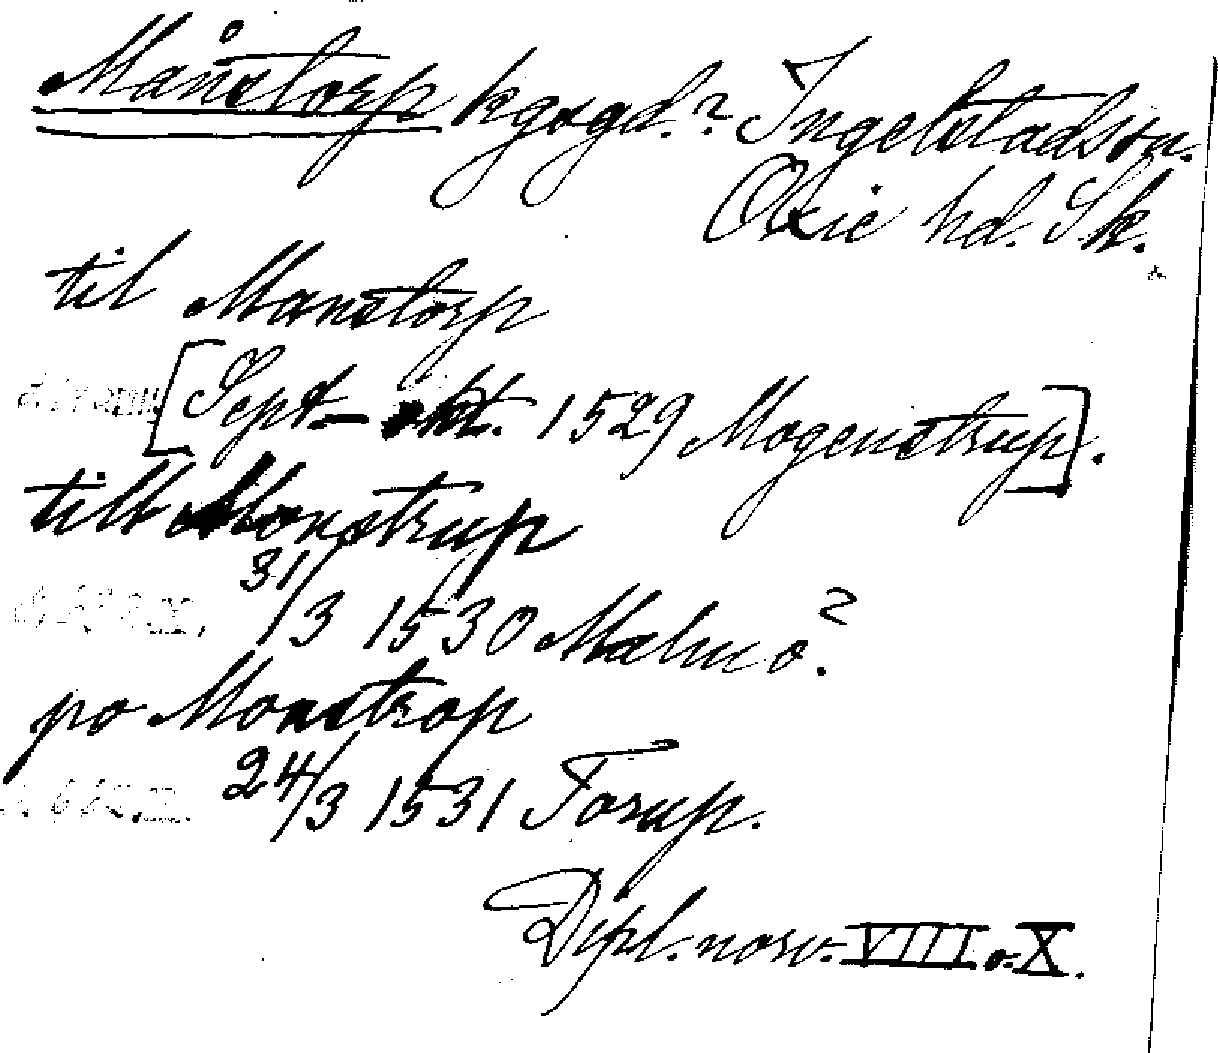 Månstorp kgsgd.? Ingelstadssn.
Oxie hd. Sk.
til Manstorp
[Sept.–okt. 1529 Mogenstrup].
till Monstrup
31/3 1530 Malmo?.
po Monstrop
24/3 1531 Torup.
Dipl. norv. VIII o. X.